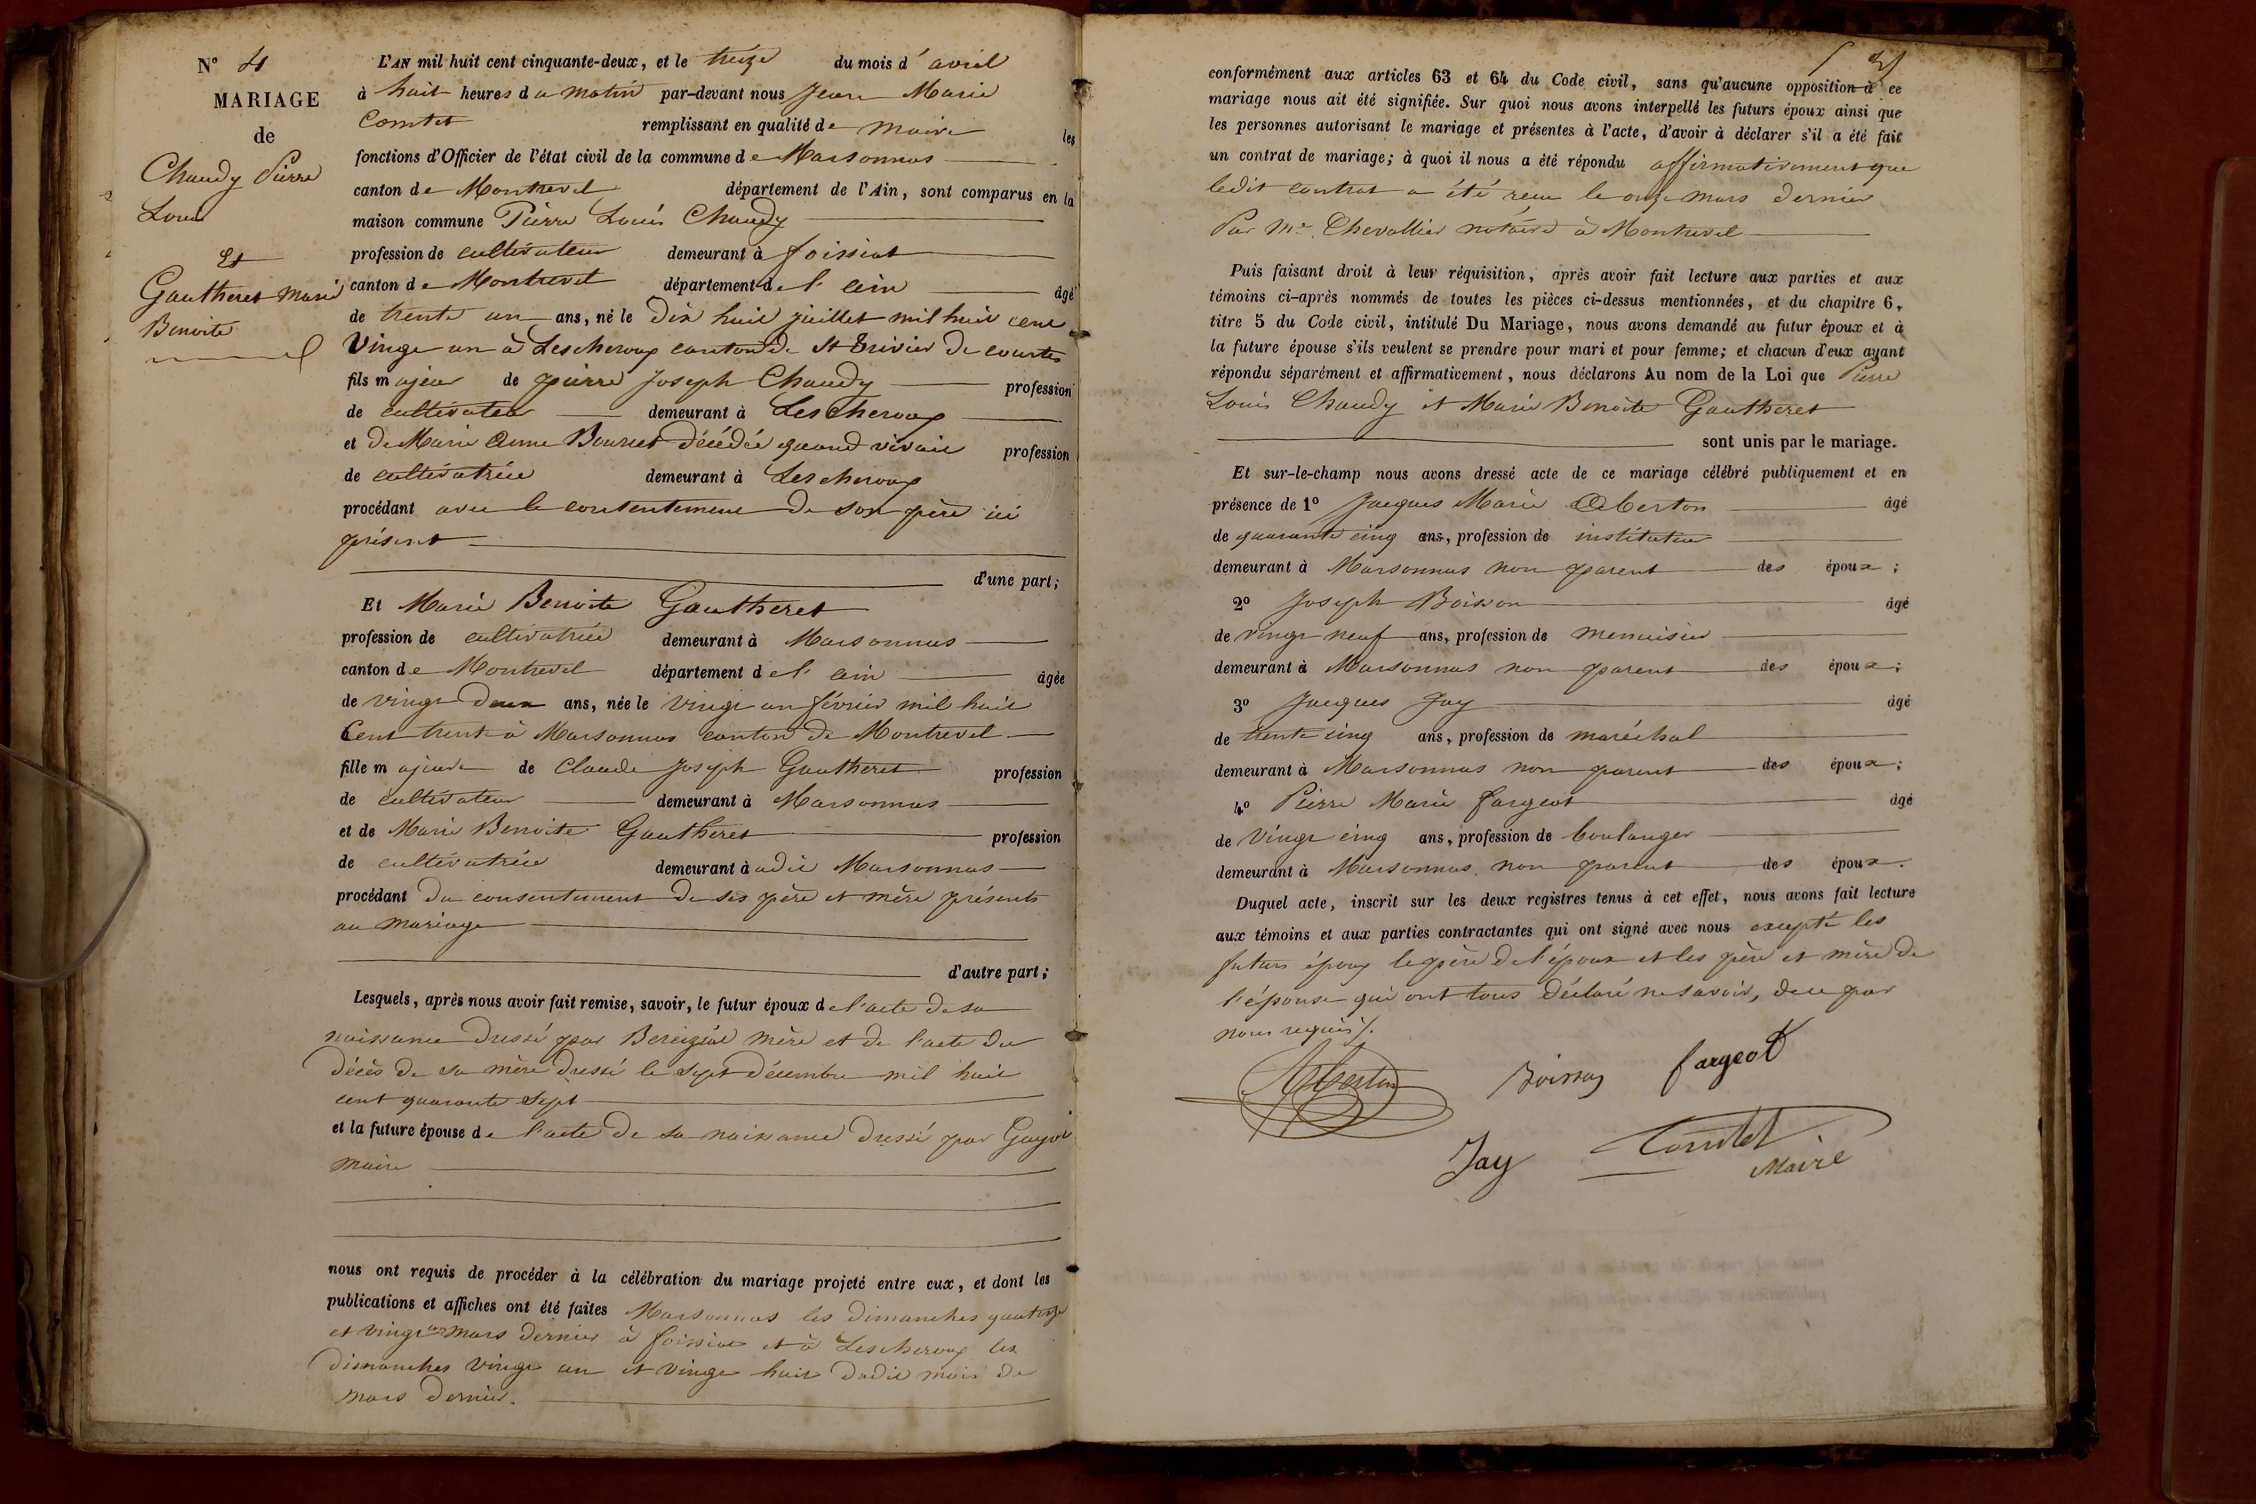 N° 4
MARIAGE
de
Chaudy Pierre
Louis
Et
Gautheret Marie
Benoite
L'AN mil huit cent cinquante-deux, et le treize du mois d'avril
à huit heures du matin par-devant nous Jean Marie
Comtet remplissant en qualité de maire les
fonctions d'Officier de l'état civil de la commune de Marsonnas
canton de Montrevel département de l'Ain, sont comparus en la
maison commune Pierre Louis Chaudy
profession de cultivateur demeurant à foissiat
canton de Montrevel département de l'ain âgé
de trente un ans, né le dix huit juillet mil huit cent
vingt un à Lescheroux canton de St Trivier de courtes
fils majeur de pierre Joseph Chaudy profession
de cultivateur demeurant à Lescheroux
et de Marie Anne Bourcet décédée quand vivait profession
de cultivatrice demeurant à Lescheroux
procédant avec le consentement de son père ici
présent
d'une part;
Et Marie Benoite Gautheret
profession de cultivatrice demeurant à Marsonnas
canton de Montrevel département de l'ain âgée
de vingt deux ans, née le vingt un février mil huit
Cent trente à Marsonnas canton de Montrevel
fille majeure de Claude Joseph Gautheret profession
de cultivateur demeurant à Marsonnas
et de Marie Benoite Gautheret profession
de cultivatrice demeurant à audit Marsonnas
procédant du consentement de ses père et mère présents
au mariage
d'autre part;
Lesquels, après nous avoir fait remise, savoir, le futur époux de l'acte de sa
naissance dressé par mère et de l'acte du
décès de sa mère dressé le sept décembre mil huit
cent quarante sept
et la future épouse de l'acte de sa naissance dressé par Guyot
maire
nous ont requis de procéder à la célébration du mariage projeté entre eux, et dont les
publications et affiches ont été faites Marsonnas les dimanches quatorze
et vingt un mars dernier à foissiat et à Lescheroux les
dimanches vingt un et vingt huit dudit mois de
mars dernier.
conformément aux articles 63 et 64 du Code civil, sans qu'aucune opposition à ce
mariage nous ait été signifiée. Sur quoi nous avons interpellé les futurs époux ainsi que
les personnes autorisant le mariage et présentes à l'acte, d'avoir à déclarer s'il a été fait
un contrat de mariage; à quoi il nous a été répondu affirmativement que
ledit contrat a été reçu le onze mars dernier
Par Me. Chevallier notaire à Montrevel
Puis faisant droit à leur réquisition, après avoir fait lecture aux parties et aux
témoins ci-après nommés de toutes les pièces ci-dessus mentionnées, et du chapitre 6,
titre 5 du Code civil, intitulé Du Mariage, nous avons demandé au futur époux et à
la future épouse s'ils veulent se prendre pour mari et pour femme; et chacun d'eux ayant
répondu séparément et affirmativement, nous déclarons Au nom de la Loi que Pierre
Louis Chaudy et Marie Benoite Gautheret
sont unis par le mariage.
Et sur-le-champ nous avons dressé acte de ce mariage célébré publiquement et en
présence de 1° Jacques Marie Alberton âgé
de quarante cinq ans, profession de instituteur
demeurant à Marsonnas non parent des époux;
2° Joseph Boisson âgé
de vingt neuf ans, profession de menuisier
demeurant à Marsonnas non parent des époux;
3° Jacques Jay âgé
de trente cinq ans, profession de maréchal
demeurant à Marsonnas non parent des époux;
4° Pierre Marie fargeot âgé
de Vingt cinq ans, profession de boulanger
demeurant à Marsonnas non parent des époux.
Duquel acte, inscrit sur les deux registres tenus à cet effet, nous avons fait lecture
aux témoins et aux parties contractantes qui ont signé avec nous excepté les
futurs époux le père de l'époux et les père et mère de
l'épouse qui ont tous déclaré ne savoir, de ce par
nous requis /.
Alberton Boisson fargeot
Jay Comtet
Maire